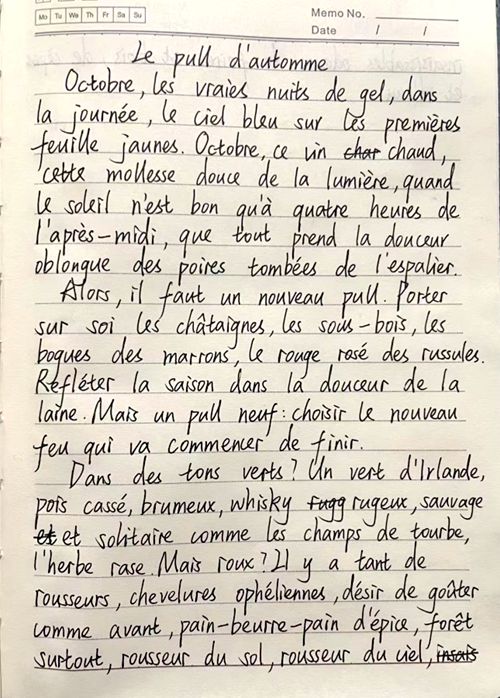 Mo Tu We Th Fr Sa Su
Memo No.
Date / /
Le pull d'automne
Octobre, les vraies nuits de gel, dans
la journée, le ciel bleu sur les premières
feuille jaunes. Octobre, ce vin char chaud,
cette mollesse douce de la lumière, quand
le soleil n'est bon qu'à quatre heures de
l'après-midi, que tout prend la douceur
oblongue des poires tombées de l'espalier.
Alors, il faut un nouveau pull. Porter
sur soi les châtaignes, les sous-bois, les
bogues des marrons, le rouge rosé des russules.
Refléter la saison dans la douceur de la
laine. Mais un pull neuf : choisir le nouveau
feu qui va commencer de finir.
Dans des tons verts ? Un vert d'Irlande,
pois cassé, brumeux, whisky rugg rugeux, sauvage
et et solitaire comme les champs de tourbe,
l'herbe rase. Mais roux ? Il y a tant de
rousseurs, chevelures ophéliennes, désir de goûter
comme avant, pain-beurre-pain d'épice, forêt
surtout, rousseur du sol, rousseur du ciel,